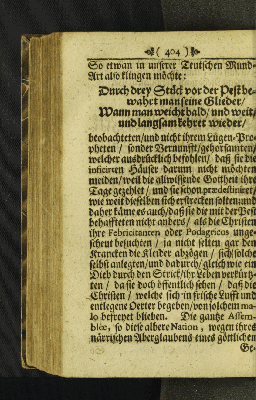 ( 404 )
So etwan in unserer Teutschen Mund-
Art also klingen möchte:
Durch drey Stück vor der Pest be-
wahrt man seine Glieder/
Wann man weicht bald/ und weit/
und langsam kehret wieder/
beobachteten/ und nicht ihrem Lügen-Pro-
pheten / sonder Vernunfft/ gehorsamten/
welcher ausdrücklich befohlen/ daß sie die
inficirten Häuser darum nicht möchten
meiden/ weil die allwissende Gottheit ihre
Tage gezehlet / und sie schon prædestiniret/
wie weit dieselben sich erstrecken sollten: und
daher käme es auch/ daß sie die mit der Pest
behaffteten nicht anders / als die Christen
ihre Febricitanten oder Podagricos unge-
scheut besuchten / ja nicht selten gar den
Krancken die Kleider abzögen / sich solche
selbst anlegten/ und dadurch/ gleich wie ein
Dieb durch den Strick/ ihr Leben verkürtz-
ten / da sie doch öffentlich sehen / daß die
Christen / welche sich in frische Lufft und
entlegene Oerter begeben/ von solchem ma-
lo befreyet blieben. Die gantze Assem-
blée, so diese albere Nation, wegen ihres
närrischen Aberglaubens eines göttlichen
Ge-